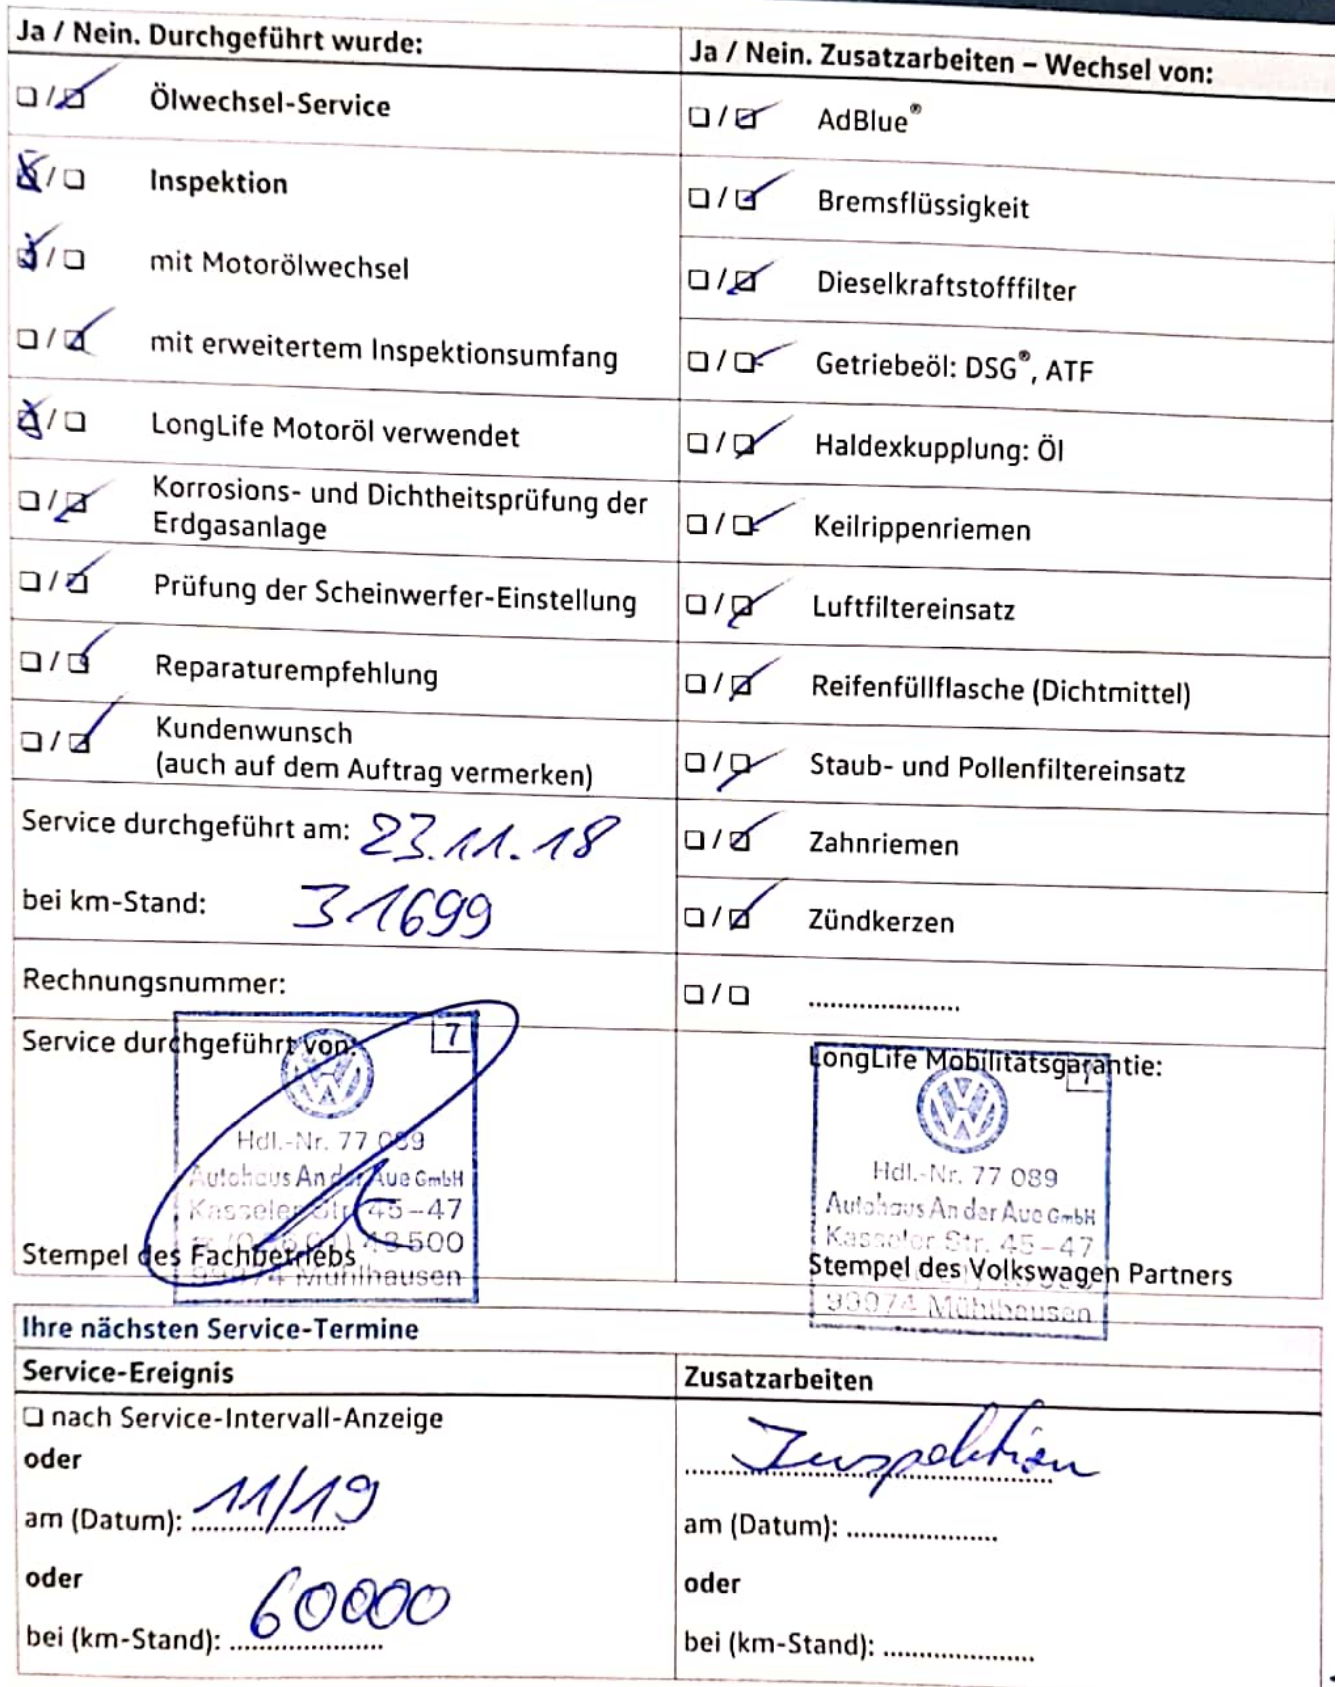 Ja / Nein. Durchgeführt wurde:
☐ / ☑ Ölwechsel-Service
☒ / ☐ Inspektion
☑ / ☐ mit Motorölwechsel
☐ / ☑ mit erweitertem Inspektionsumfang
☒ / ☐ LongLife Motoröl verwendet
☐ / ☑ Korrosions- und Dichtheitsprüfung der
Erdgasanlage
☐ / ☑ Prüfung der Scheinwerfer-Einstellung
☐ / ☑ Reparaturempfehlung
☐ / ☑ Kundenwunsch
(auch auf dem Auftrag vermerken)
Service durchgeführt am: 23.11.18
bei km-Stand: 31699
Rechnungsnummer:
Service durchgeführt von:
7
Hdl.-Nr. 77 089
Autohaus An der Aue GmbH
Kasseler Str. 45-47
500
99974 Mühlhausen
Stempel des Fachbetriebs
Ja / Nein. Zusatzarbeiten – Wechsel von:
☐ / ☑ AdBlue®
☐ / ☑ Bremsflüssigkeit
☐ / ☑ Dieselkraftstofffilter
☐ / ☑ Getriebeöl: DSG®, ATF
☐ / ☑ Haldexkupplung: Öl
☐ / ☑ Keilrippenriemen
☐ / ☑ Luftfiltereinsatz
☐ / ☑ Reifenfüllflasche (Dichtmittel)
☐ / ☑ Staub- und Pollenfiltereinsatz
☐ / ☑ Zahnriemen
☐ / ☑ Zündkerzen
☐ / ☐ ....................
LongLife Mobilitätsgarantie:
Hdl.-Nr. 77 089
Autohaus An der Aue GmbH
Kasseler Str. 45-47
99974 Mühlhausen
Stempel des Volkswagen Partners
Ihre nächsten Service-Termine
Service-Ereignis
☐ nach Service-Intervall-Anzeige
oder
am (Datum): 11/19
oder
bei (km-Stand): 60000
Zusatzarbeiten
Inspektion
am (Datum): ....................
oder
bei (km-Stand): ....................